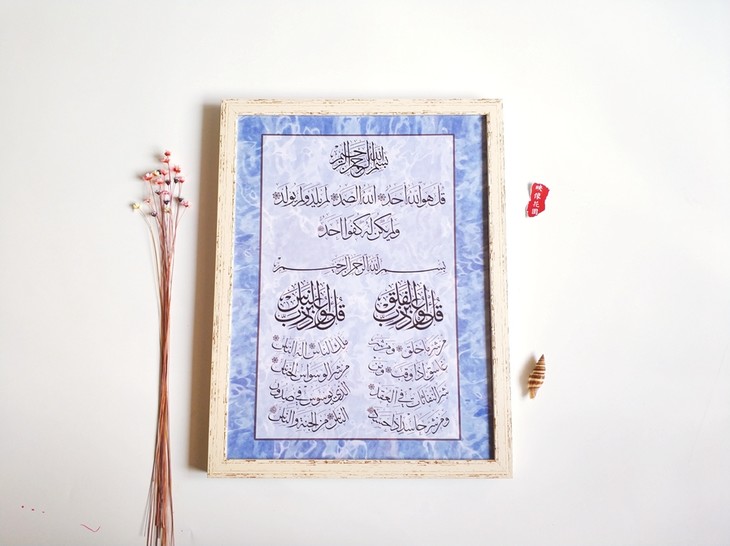 بسم الله الرحمن الرحيم
قل هو الله أحد الله الصمد لم يلد ولم يولد
ولم يكن له كفوا أحد
بسم الله الرحمن الرحيم
قل أعوذ برب الفلق
من شر ما خلق ومن شر
غاسق إذا وقب ومن
شر النفاثات في العقد
ومن شر حاسد إذا حسد
قل أعوذ برب الناس
ملك الناس إله الناس
من شر الوسواس الخناس
الذي يوسوس في صدور
الناس من الجنة والناس
映像花園